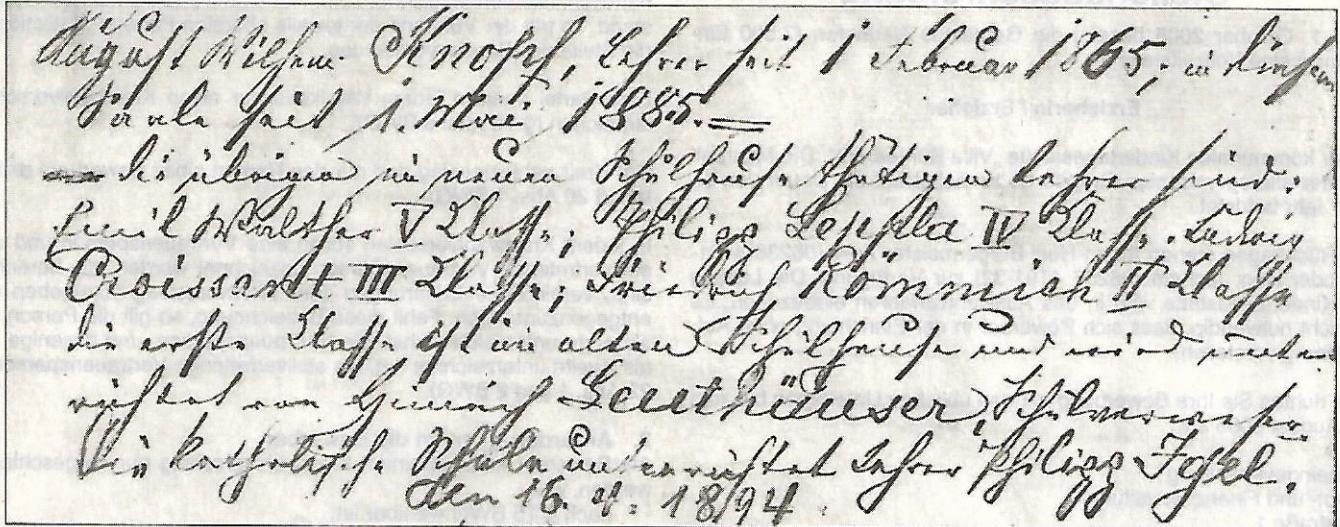 August Wilhem Knopf, Lehrer seit 1 Februar 1865, in diesem
Saale seit 1. Mai 1885.
die übrigen im neuen Schulhause thätigen Lehrer sind:
Emil Walther V Klasse; Philipp IV Klasse. Ludwig
Croissant III Klasse; Friedr. Kömmich II Klasse
die erste Klasse ist im alten Schulhause und wird unter-
richtet von Heinrich Lauthäuser, Schulverweser.
Die kathol. Schule unterrichtet Lehrer Philipp Igel.
den 16. 1894.